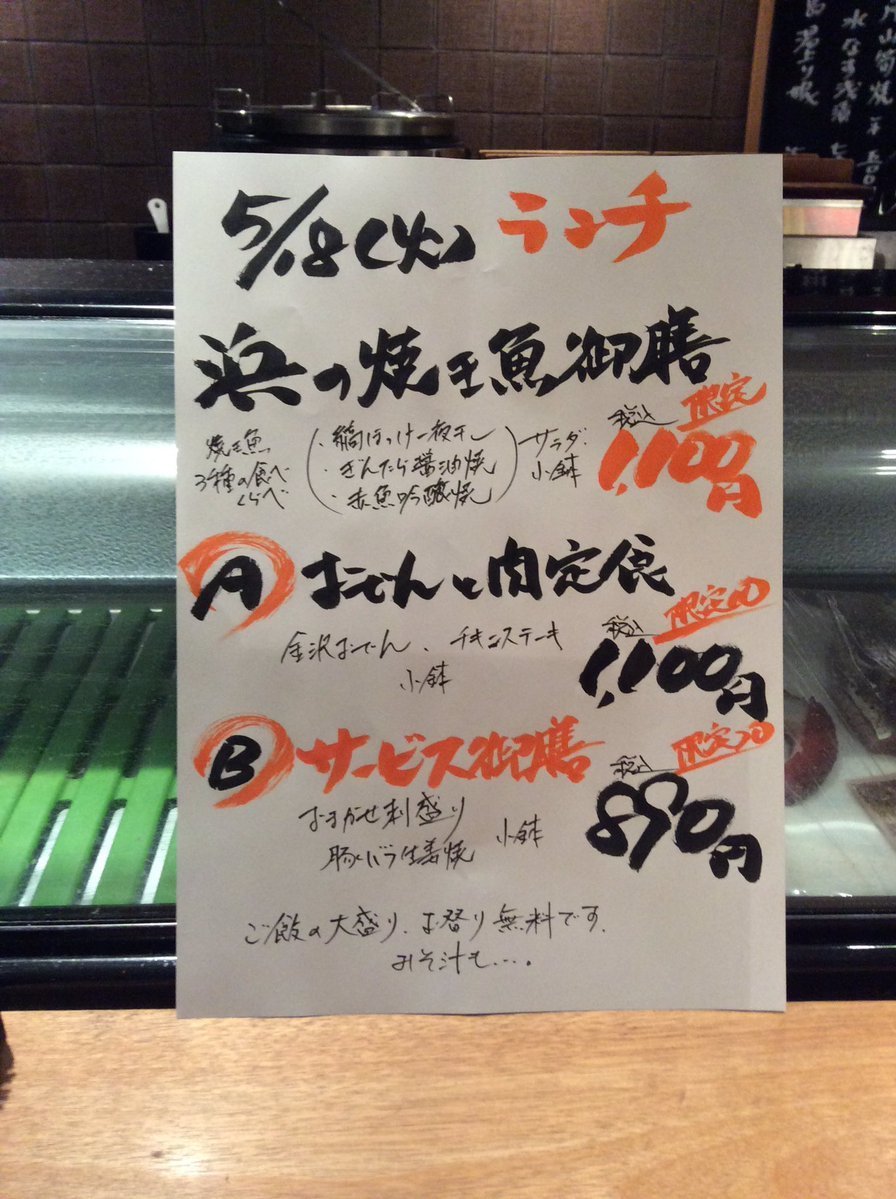 5/18(火) ランチ
浜の焼き魚御膳
限定
税込
1,100円
焼き魚
3種の食べ
くらべ
・縞ほっけ一夜干し
・ぎんだら醤油焼
・赤魚吟醸焼
サラダ.
小鉢
A おでんと肉定食
限定10
税込
1,100円
金沢おでん、チキンステーキ
小鉢
B サービス御膳
限定20
税込
890円
おまかせ刺盛り
豚バラ生姜焼
小鉢
ご飯の大盛り、お替り無料です.
みそ汁も...。
水なす浅漬